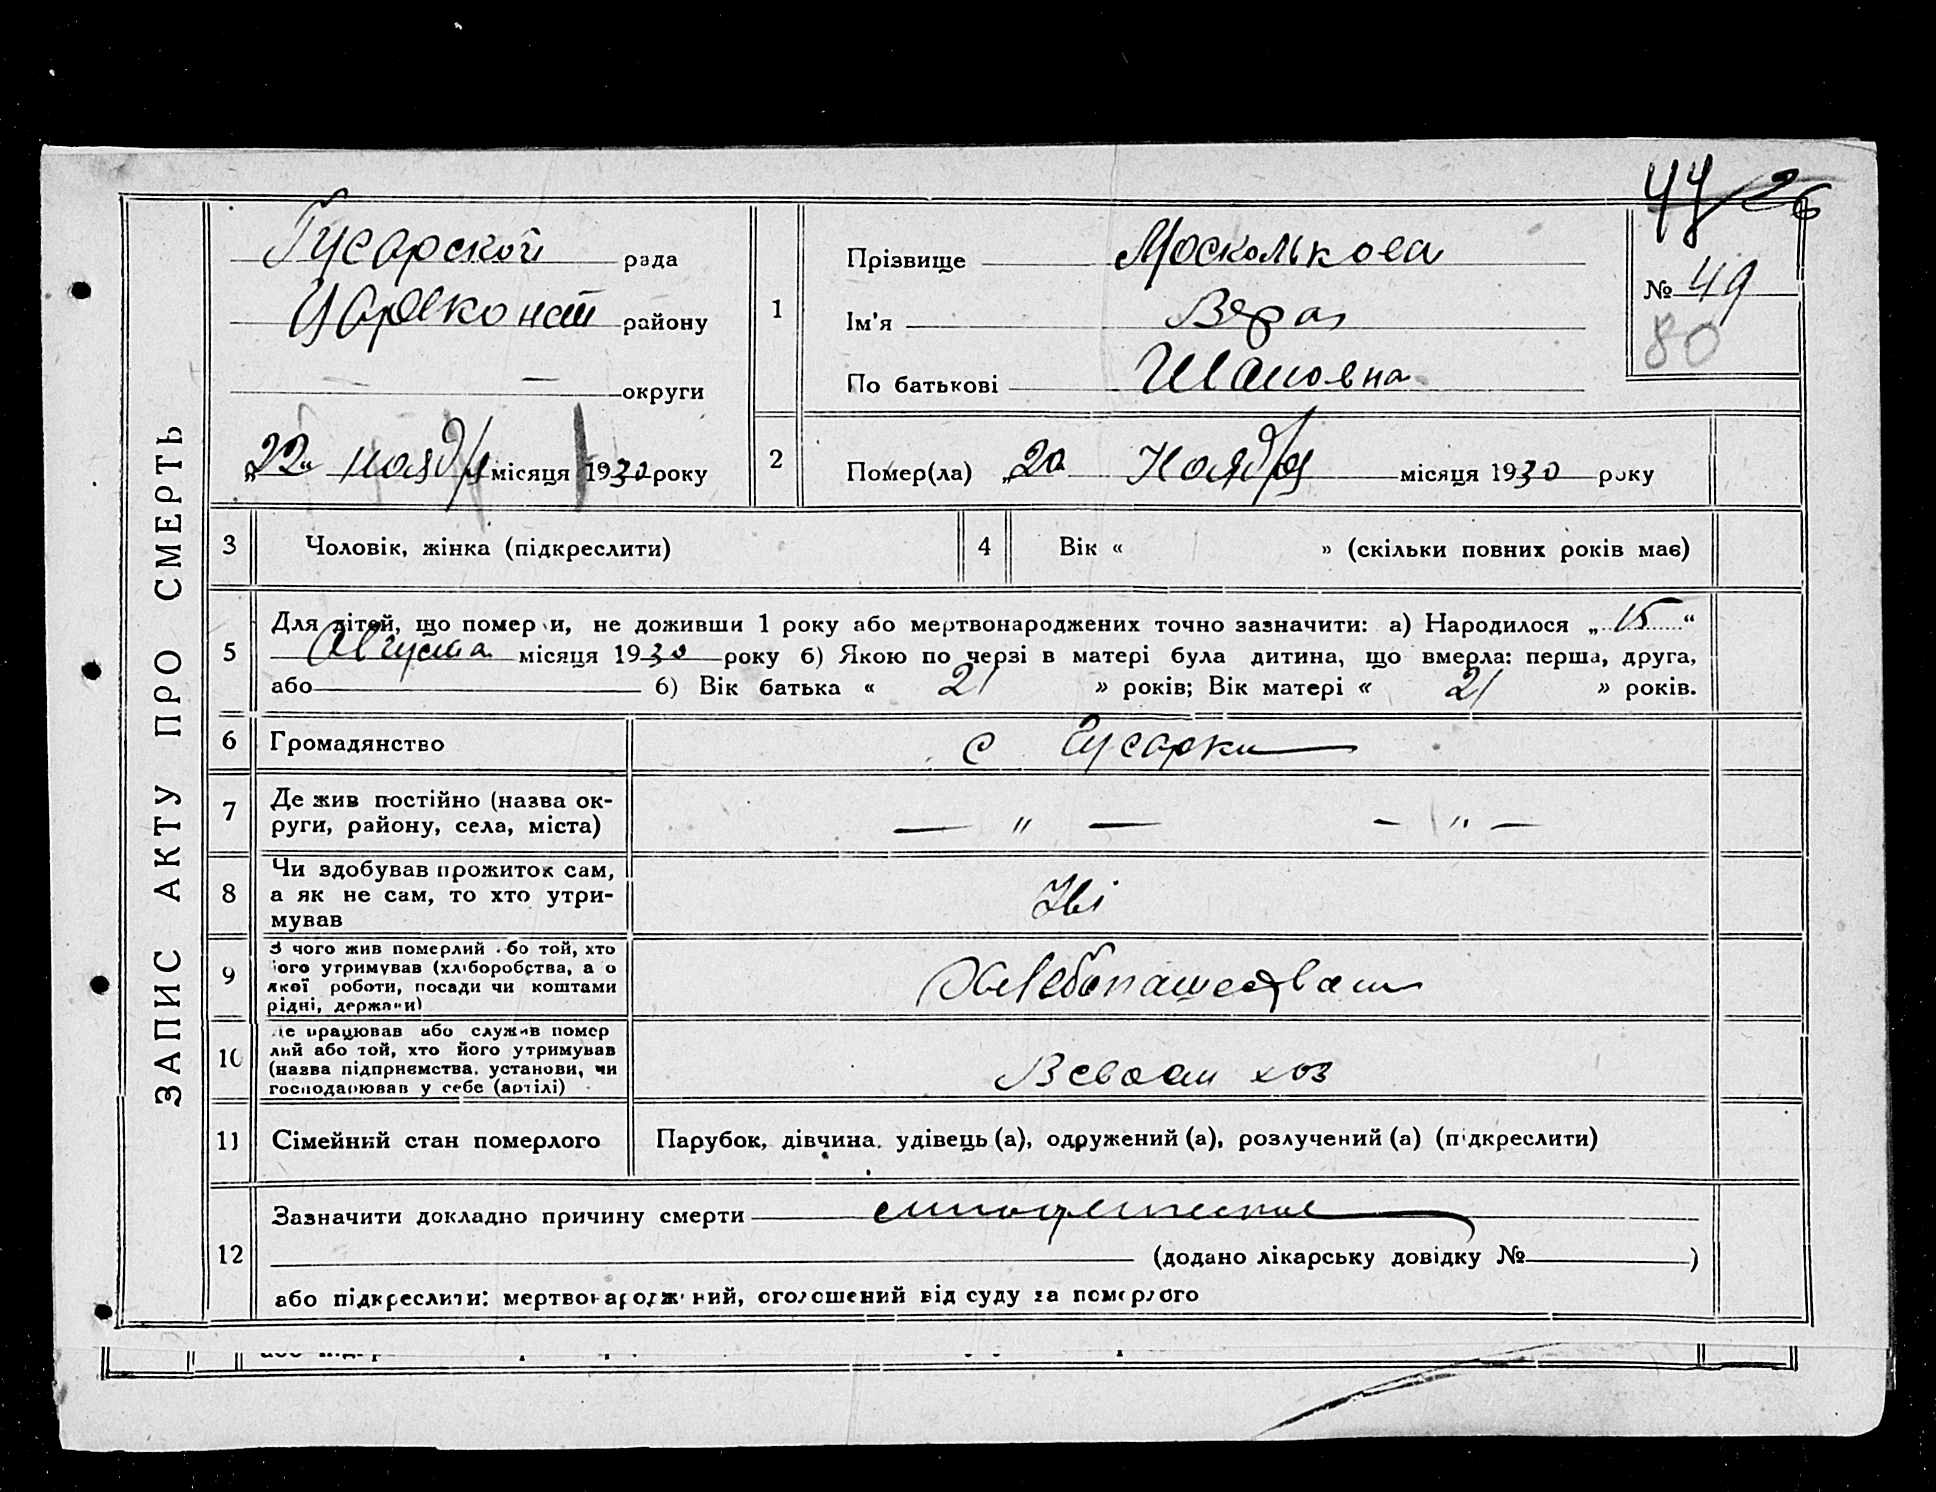 ЗАПИС АКТУ ПРО СМЕРТЬ
44/26
Гусарской рада
району
округи
„22“ ноября місяця 1930 року
1
Прізвище Москолькова
Ім'я Вера
По батькові Ивановна
№ 49
80
2
Помер(ла) „20 Ноября місяця 1930 року
3 Чоловік, жінка (підкреслити)
4 Вік « » (скільки повних років має)
5 Для дітей, що померли, не доживши 1 року або мертвонароджених точно зазначити: а) Народилося „15“
Августа місяця 1930 року б) Якою по черзі в матері була дитина, що вмерла: перша, друга,
або б) Вік батька « 21 » років; Вік матері « 21 » років.
6 Громадянство с Гусарки
7 Де жив постійно (назва ок-
руги, району, села, міста) — " — — " —
8 Чи здобував прожиток сам,
а як не сам, то хто утри-
мував
9 З чого жив померлий або той, хто
його утримував (хліборобства, або
якої роботи, посади чи коштами
рідні, держави)
Хлебопашеством
10 Де працював або служив помер
лий або той, хто його утримував
(назва підприємства, установи, чи
господарював у себе (артілі)
хоз
11 Сімейний стан померлого Парубок, дівчина, удівець (а), одружений (а), розлучений (а) (підкреслити)
12 Зазначити докладно причину смерти
(додано лікарську довідку № )
або підкреслити: мертвонароджений, оголошений від суду за померлого